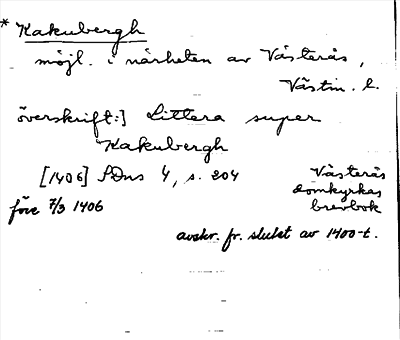 * Kakubergh
möjl. i närheten av Västerås,
Västm. l.
överskrift:] Littera super
Kakubergh
[1406] SDns 4, s. 204 Västerås
domkyrkas
före 7/3 1406 brevbok
avskr. fr. slutet av 1400-t.